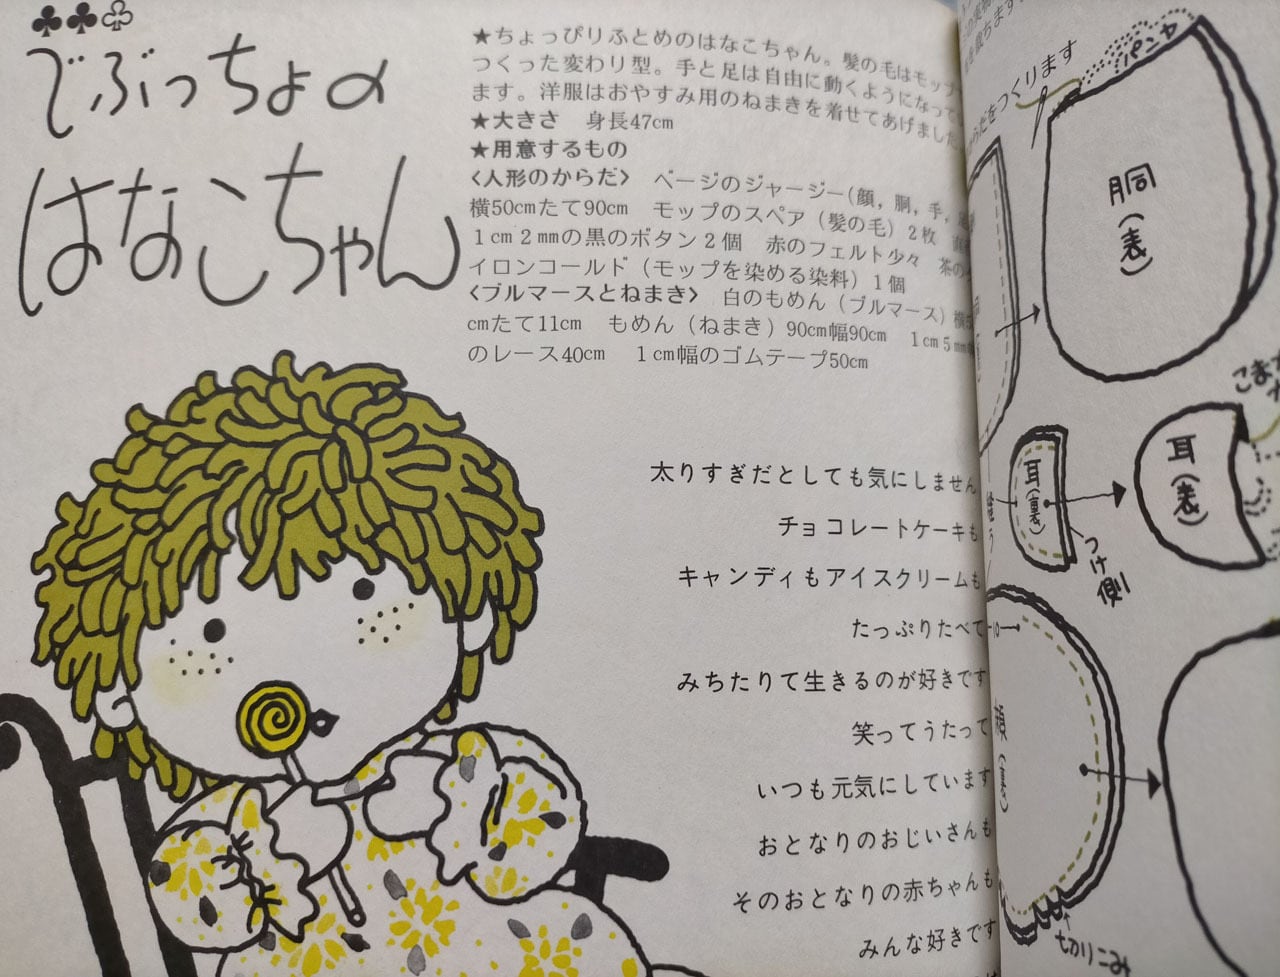 でぶっちょの
はなこちゃん
★ちょっぴりふとめのはなこちゃん。髪の毛はモップ
つくった変わり型。手と足は自由に動くようになって
ます。洋服はおやすみ用のねまきを着せてあげました
★大きさ 身長47cm
★用意するもの
〈人形のからだ〉 ベージのジャージー(顔,胴,手,
横50cmたて90cm モップのスペア(髪の毛)2枚
1cm2mmの黒のボタン2個 赤のフェルト少々 茶の
イロンコールド(モップを染める染料)1個
〈ブルマースとねまき〉 白のもめん(ブルマース)
cmたて11cm もめん(ねまき)90cm幅90cm 1cm5
のレース40cm 1cm幅のゴムテープ50cm
太りすぎだとしても気にしません
チョコレートケーキも
キャンディもアイスクリームも
たっぷりたべて
みちたりて生きるのが好きです
笑ってうたって
いつも元気にしています
おとなりのおじいさんも
そのおとなりの赤ちゃんも
みんな好きです
らだをつくります
パンヤ
胴(表)
耳(裏)
つけ側
耳(表)
顔(裏)